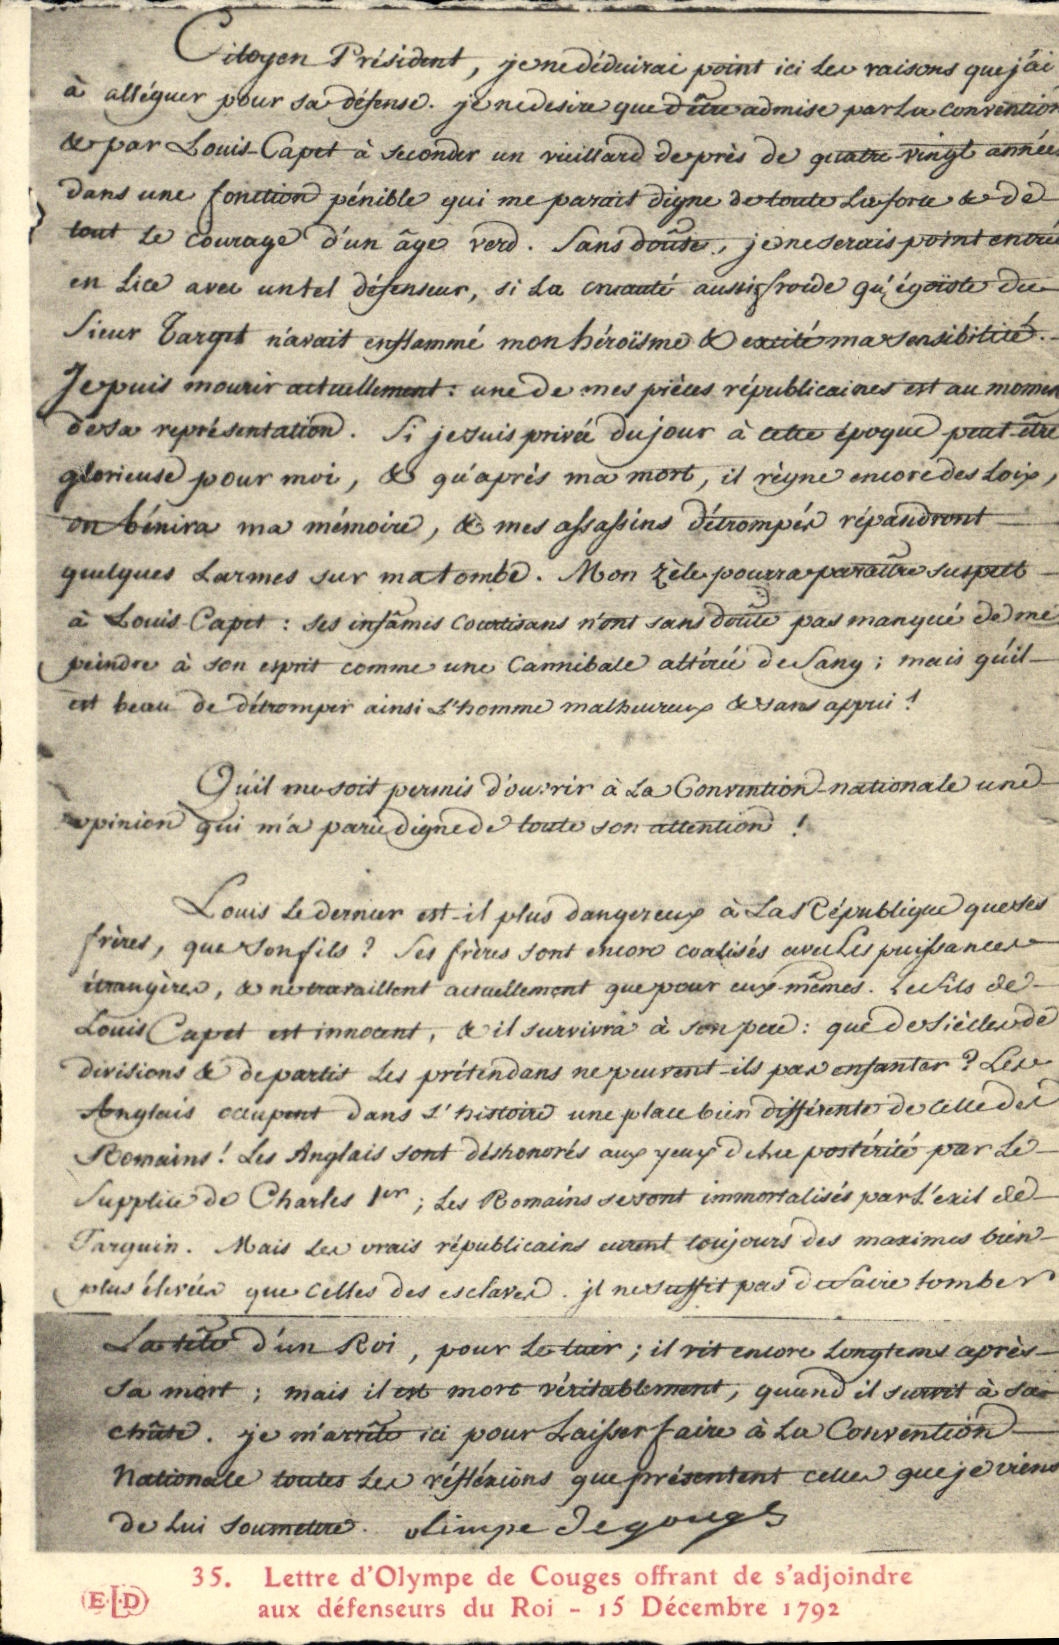 Citoyen Président, je ne déduirai point ici les raisons que j'ai
à alléguer pour sa défense. je ne desire que d'être admise par la convention
& par Louis-Capet à seconder un vieillard de près de quatre-vingt années
dans une fonction pénible qui me parait digne de toute la force & de
tout le courage d'un âge verd. Sans doûte, je ne serais point entrée
en lice avec un tel défenseur, si la cruauté aussi froide qu'égoïste du
Sieur Target n'avait enflammé mon héroïsme & excité ma sensibilité.
Je puis mourir actuellement : une de mes pièces républicaines est au moment
de sa représentation. Si je suis privée du jour à cette époque peut-être
glorieuse pour moi, & qu'après ma mort, il règne encore des loix,
on bénira ma mémoire, & mes assassins détrompés répandront
quelques larmes sur ma tombe. Mon zèle pourra paraître suspect
à Louis-Capet : ses infâmes courtisans n'ont sans doûte pas manqué de me
peindre à son esprit comme une Cannibale altérée de sang ; mais qu'il
est beau de détromper ainsi l'homme malheureux & sans appui !
Qu'il me soit permis d'ouvrir à la Convention-nationale une
opinion qui m'a paru digne de toute son attention !
Louis le dernier est-il plus dangereux à la République que ses
frères, que son fils ? Ses frères sont encore coalisés avec les puissances
étrangères, & ne travaillent actuellement que pour eux-mêmes. Le fils de
Louis Capet est innocent, & il survivra à son pere : que de siècles de
divisions & de partis les prétendans ne peuvent-ils pas enfanter ? Les
Anglais occupent dans l'histoire une place bien différente de celle des
Romains ! Les Anglais sont déshonorés aux yeux de la postérité par le
supplice de Charles 1er ; les Romains se sont immortalisés par l'exil de
Tarquin. Mais les vrais républicains eurent toujours des maximes bien
plus élevées que celles des esclaves. il ne suffit pas de faire tomber
La tête d'un Roi, pour le tuer ; il vit encore longtems après
sa mort ; mais il est mort véritablement, quand il survit à sa
chûte. je m'arrête ici pour laisser faire à la Convention
Nationale toutes les réfléxions que présentent celles que je viens
de lui soumettre. olimpe de gouges
35. Lettre d'Olympe de Couges offrant de s'adjoindre
aux défenseurs du Roi - 15 Décembre 1792
E.L.D